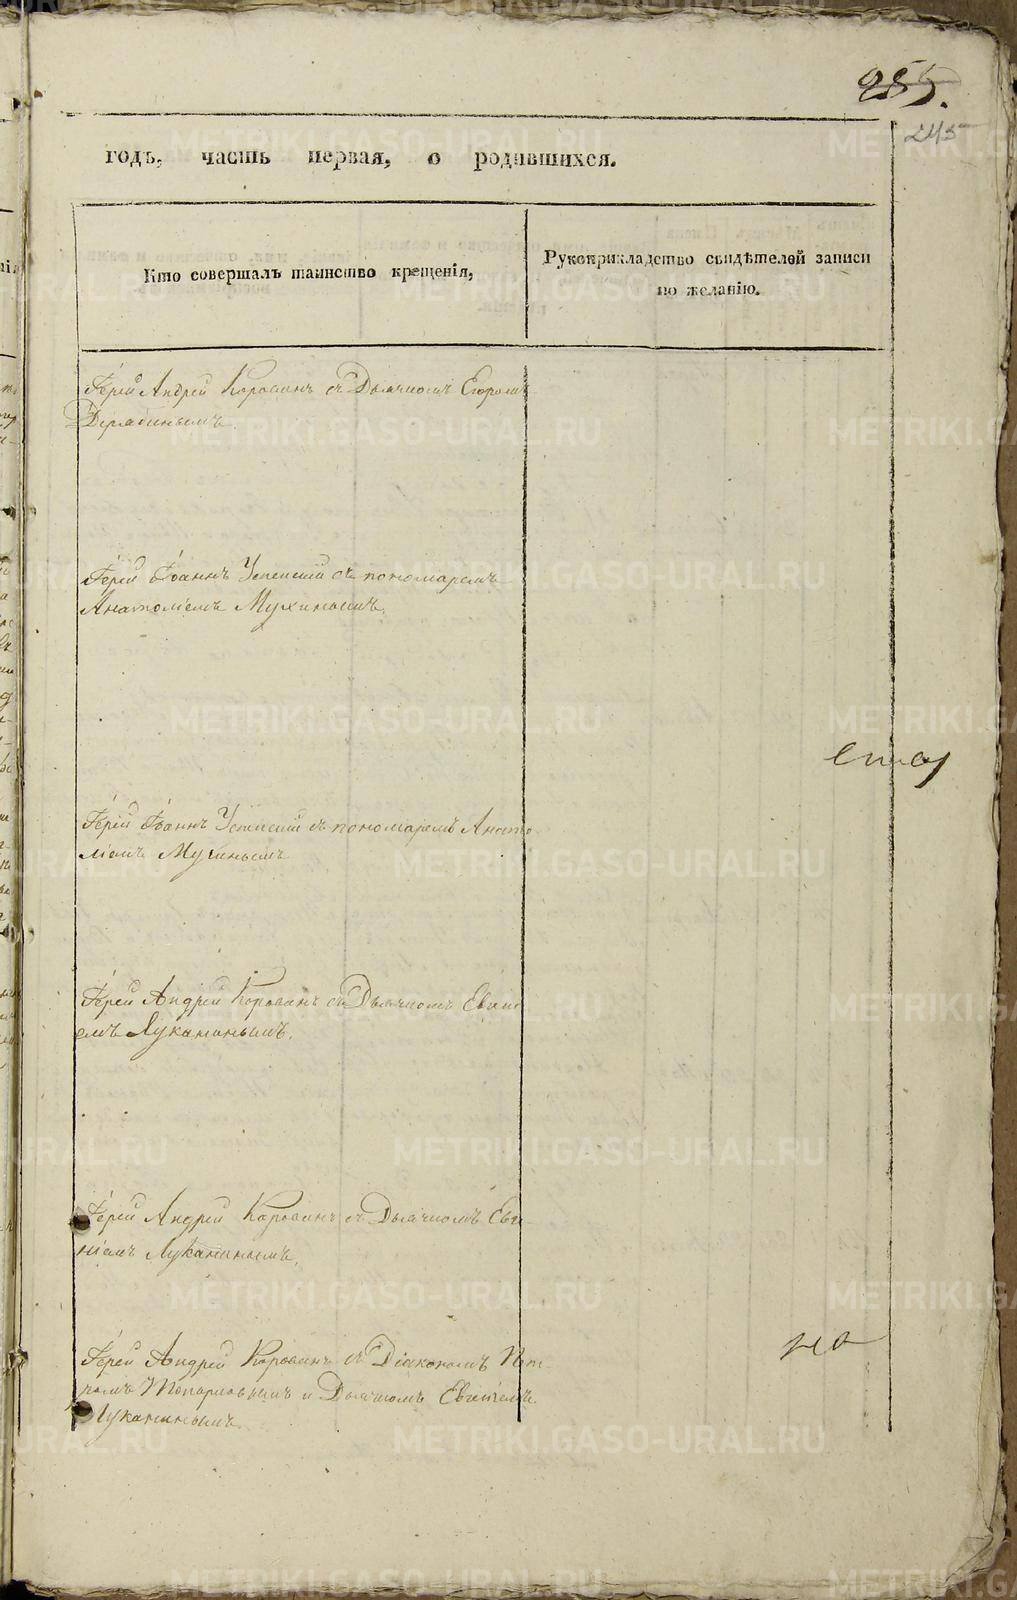 255.
245
годъ, часть первая, о родившихся.
Кто совершалъ таинство крещенія,
Рукоприкладство свидѣтелей записи
по желанію.
Іерей Андрей Коровинъ съ Дьячкомъ Егоромъ
Дерябинымъ.
Іерей Іоаннъ Успенскій съ пономаремъ
Анатоліемъ Мухинымъ.
Іерей Іоаннъ Успенскій съ пономаремъ Анато
ліемъ Мухинымъ
Іерей Андрей Коровинъ съ Дьячкомъ Евгені
емъ Луканинымъ.
Іерей Андрей Коровинъ съ Дьячкомъ Евге
ніемъ Луканинымъ.
Іерей Андрей Коровинъ съ Діакономъ
и Дьячкомъ Евгеніемъ
Луканинымъ
но
METRIKI.GASO-URAL.RU